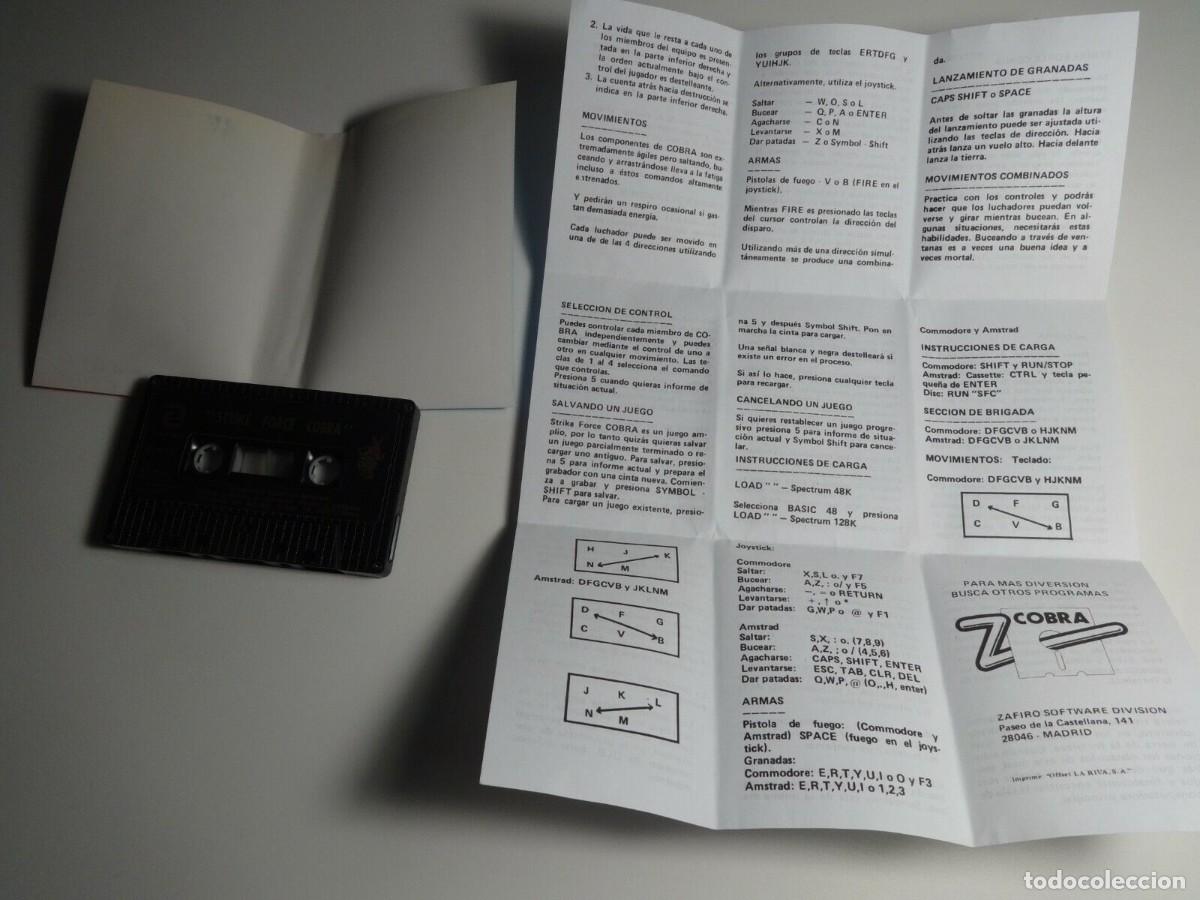 "STRIKE FORCE COBRA"
2. La vida que le resta a cada uno de
los miembros del equipo es presen-
tada en la parte inferior derecha y
la orden actualmente bajo el con-
trol del jugador es destelleante.
3. La cuenta atrás hacia destrucción se
indica en la parte inferior derecha.
MOVIMIENTOS
Los componentes de COBRA son ex-
tremadamente ágiles pero saltando, bu-
ceando y arrastrándose lleva a la fatiga
incluso a éstos comandos altamente
entrenados.
Y pedirán un respiro ocasional si gas-
tan demasiada energía.
Cada luchador puede ser movido en
una de de las 4 direcciones utilizando
los grupos de teclas ERTDFG y
YUIHJK.
Alternativamente, utiliza el joystick.
Saltar — W, O, S o L
Bucear — Q, P, A o ENTER
Agacharse — C o N
Levantarse — X o M
Dar patadas — Z o Symbol - Shift
ARMAS
Pistolas de fuego - V o B (FIRE en el
joystick).
Mientras FIRE es presionado las teclas
del cursor controlan la dirección del
disparo.
Utilizando más de una dirección simul-
táneamente se produce una combina-
da.
LANZAMIENTO DE GRANADAS
CAPS SHIFT o SPACE
Antes de soltar las granadas la altura
del lanzamiento puede ser ajustada uti-
lizando las teclas de dirección. Hacia
atrás lanza un vuelo alto. Hacia delante
lanza la tierra.
MOVIMIENTOS COMBINADOS
Practica con los controles y podrás
hacer que los luchadores puedan vol-
verse y girar mientras bucean. En al-
gunas situaciones, necesitarás estas
habilidades. Buceando a través de ven-
tanas es a veces una buena idea y a
veces mortal.
SELECCION DE CONTROL
Puedes controlar cada miembro de CO-
BRA independientemente y puedes
cambiar mediante el control de uno a
otro en cualquier movimiento. Las te-
clas de 1 al 4 selecciona el comando
que controlas.
Presiona 5 cuando quieras informe de
situación actual.
SALVANDO UN JUEGO
Strika Force COBRA es un juego am-
plio, por lo tanto quizás quieras salvar
un juego parcialmente terminado o re-
cargar uno antiguo. Para salvar, presio-
na 5 para informe actual y prepara el
grabador con una cinta nueva. Comien-
za a grabar y presiona SYMBOL -
SHIFT para salvar.
Para cargar un juego existente, presio-
na 5 y después Symbol Shift. Pon en
marcha la cinta para cargar.
Una señal blanca y negra destelleará si
existe un error en el proceso.
Si así lo hace, presiona cualquier tecla
para recargar.
CANCELANDO UN JUEGO
Si quieres restablecer un juego progre-
sivo presiona 5 para informe de situa-
ción actual y Symbol Shift para cance-
lar.
INSTRUCCIONES DE CARGA
LOAD " " — Spectrum 48K
Selecciona BASIC 48 y presiona
LOAD " " — Spectrum 128K
Commodore y Amstrad
INSTRUCCIONES DE CARGA
Commodore: SHIFT y RUN/STOP
Amstrad: Cassette: CTRL y tecla pe-
queña de ENTER
Disc: RUN "SFC"
SECCION DE BRIGADA
Commodore: DFGCVB o HJKNM
Amstrad: DFGCVB o JKLNM
MOVIMIENTOS: Teclado:
Commodore: DFGCVB y HJKNM
D F G
C V B
H J K
N M
Amstrad: DFGCVB y JKLNM
D F G
C V B
J K L
N M
Joystick:
Commodore
Saltar: X,S,L o. y F7
Bucear: A,Z, : o/ y F5
Agacharse: —, — o RETURN
Levantarse: + , ↑ o *
Dar patadas: G,W,P o @ y F1
Amstrad
Saltar: S,X, : o. (7,8,9)
Bucear: A,Z, ; o / (4,5,6)
Agacharse: CAPS, SHIFT, ENTER
Levantarse: ESC, TAB, CLR, DEL
Dar patadas: Q,W,P, @ (O,.,H, enter)
ARMAS
Pistola de fuego: (Commodore y
Amstrad) SPACE (fuego en el joys-
tick).
Granadas:
Commodore: E,R,T,Y,U,I o O y F3
Amstrad: E,R,T,Y,U,I o 1,2,3
PARA MAS DIVERSION
BUSCA OTROS PROGRAMAS
COBRA
ZAFIRO SOFTWARE DIVISION
Paseo de la Castellana, 141
28046 - MADRID
Imprime "Offset LA RIVA, S.A."
todocoleccion